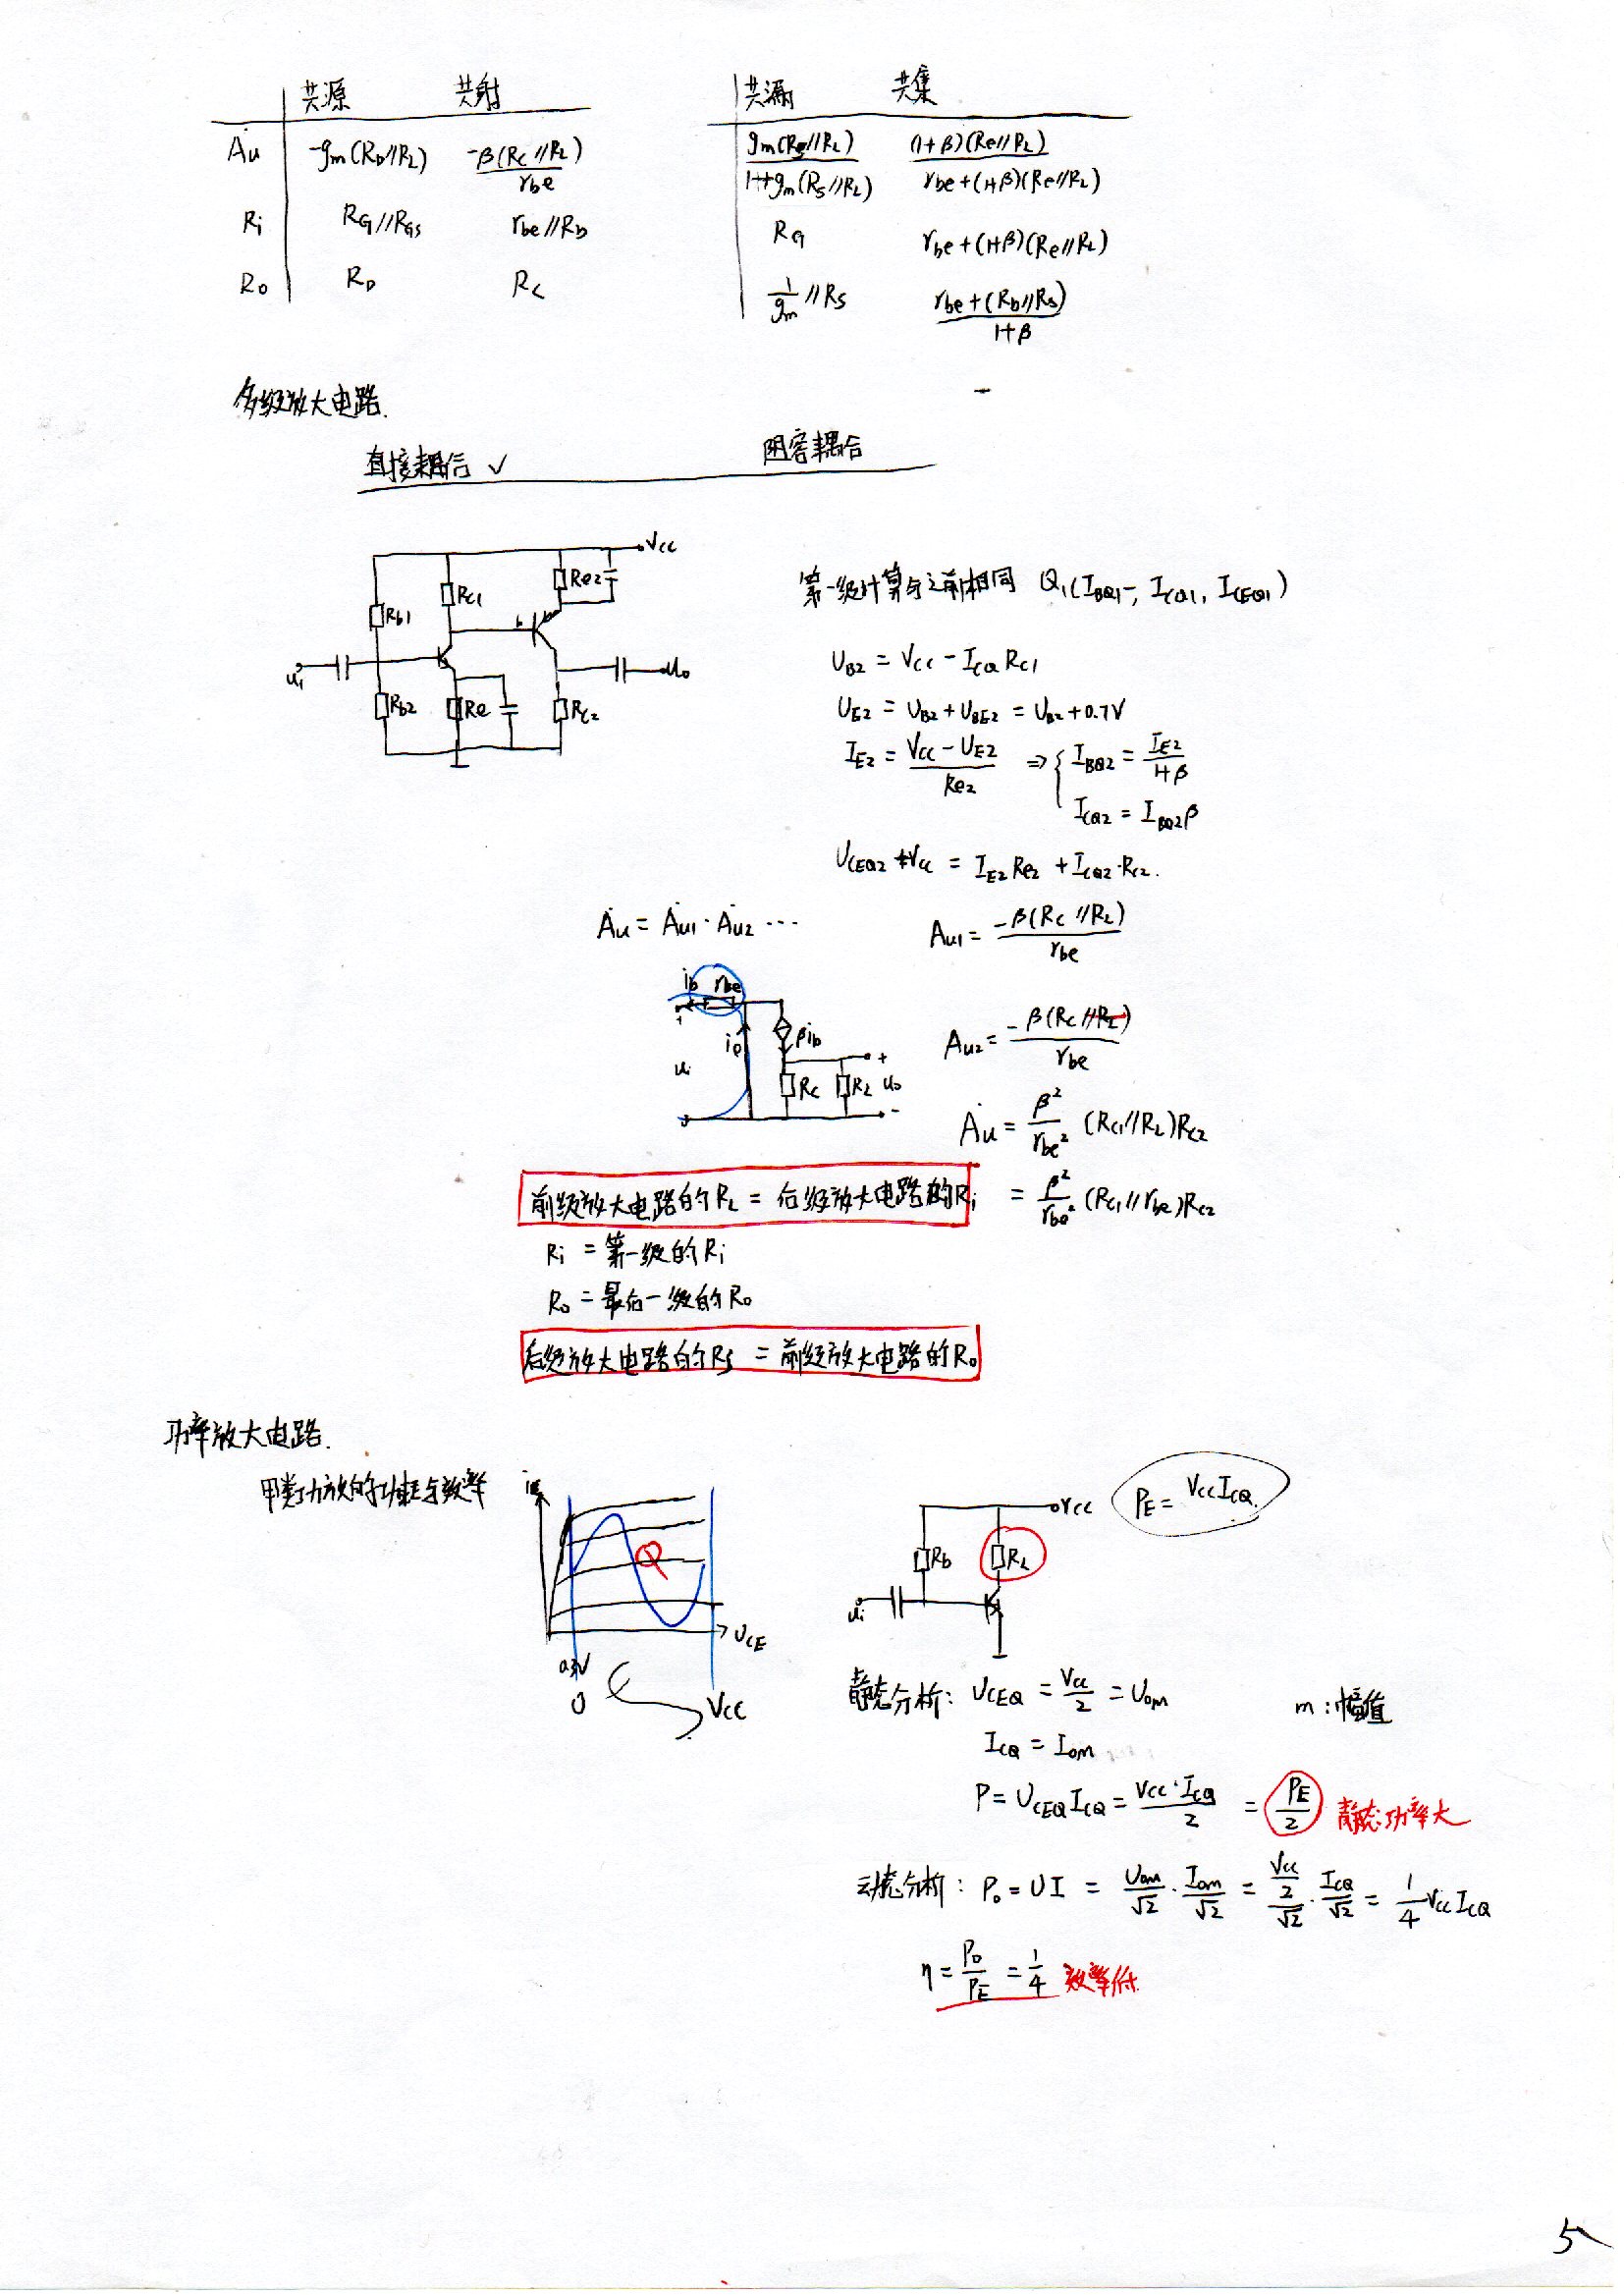 共源 共射 共漏 共集
Au -gm(RD//RL) -β(Rc//RL)/rbe gm(Rs//RL)/1+gm(Rs//RL) (1+β)(Re//RL)/rbe+(1+β)(Re//RL)
Ri RG//RGS rbe//Rb RG rbe+(1+β)(Re//RL)
Ro RD Rc 1/gm//Rs rbe+(Rb//Rs)/1+β
多级放大电路.
直接耦合 ✓ 阻容耦合
Vcc
Re2
Rc1
Rb1
b
ui uo
Rb2 Re Rc2
第一级计算与之前相同 Q1(IBQ1, ICQ1, ICEQ1)
UB2 = Vcc - ICQ Rc1
UE2 = UB2 + UBE2 = UB2 + 0.7V
IE2 = Vcc - UE2/Re2 ⇒ { IBQ2 = IE2/1+β
ICQ2 = IBQ2β
UCEQ2 +Vcc = IE2 Re2 + ICQ2·Rc2.
Au = Au1 · Au2 ··· Au1 = -β(Rc//RL)/rbe
ib rbe
+
ie βib
ui Rc RL uo
+
-
Au2 = -β(Rc//RL)/rbe
Au = β²/rbe² (Rc1//RL)Rc2
前级放大电路的RL = 后级放大电路的Ri = β²/rbe² (Rc1//rbe)Rc2
Ri = 第一级的Ri
Ro = 最后一级的Ro
后级放大电路的Rs = 前级放大电路的Ro
功率放大电路.
甲类功放的功耗与效率
Q
UCE
0.3V
0 Vcc
Vcc
Rb RL
ui
PE = VccICQ.
静态分析: UCEQ = Vcc/2 = Uom m:幅值
ICQ = Iom
P = UCEQ ICQ = Vcc·ICQ/2 = PE/2 静态功率大
动态分析: Po = UI = Uom/√2 · Iom/√2 = Vcc/2/√2 · ICQ/√2 = 1/4 Vcc ICQ
η = Po/PE = 1/4 效率低.
5